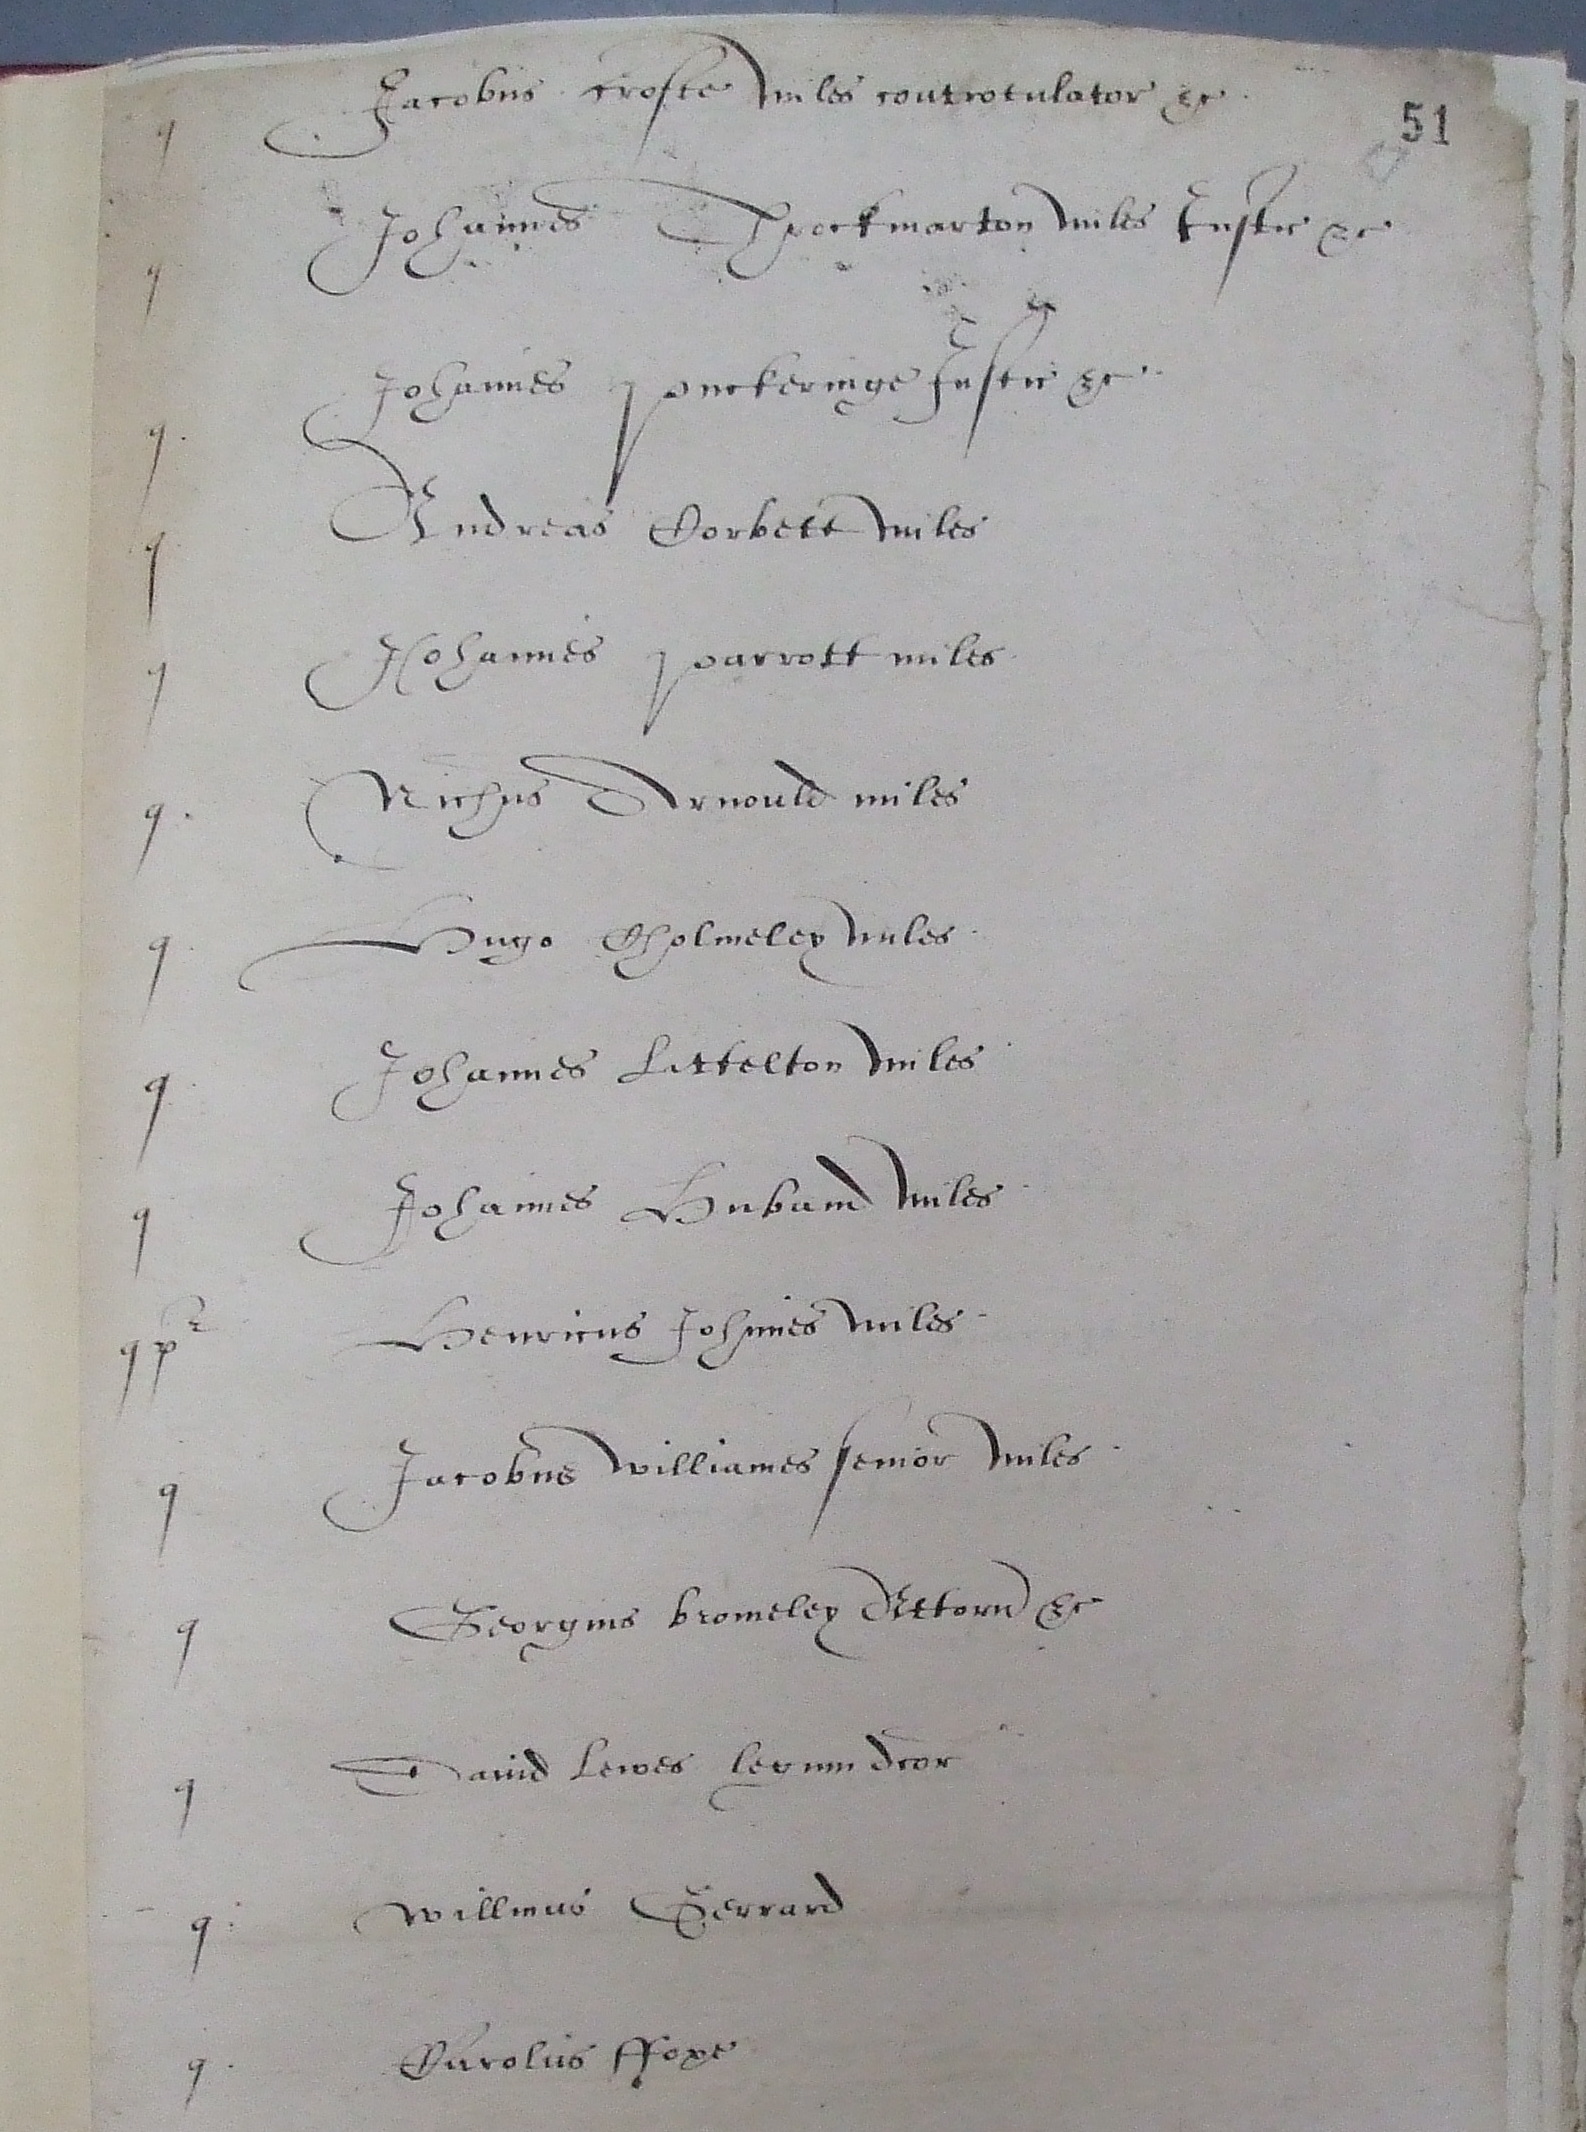 q Jacobus Crofte miles controtulator &c
51
q Johannes Throckmarton miles Justic &c
q. Johannes Puckeringe Justic &c
q Andreas Corbett miles
q Johannes Parrott miles
q. Nichus Arnould miles
q Hugo Cholmeley miles
q Johannes Littelton miles
q Johannes Huband miles
q pr Henricus Johnnes miles
q Jacobus Williames senior miles
q Georgius Bromeley Attorn &c
q David Lewes legum dcor
q: Willmus Gerrard
q. Carolus ffoxe